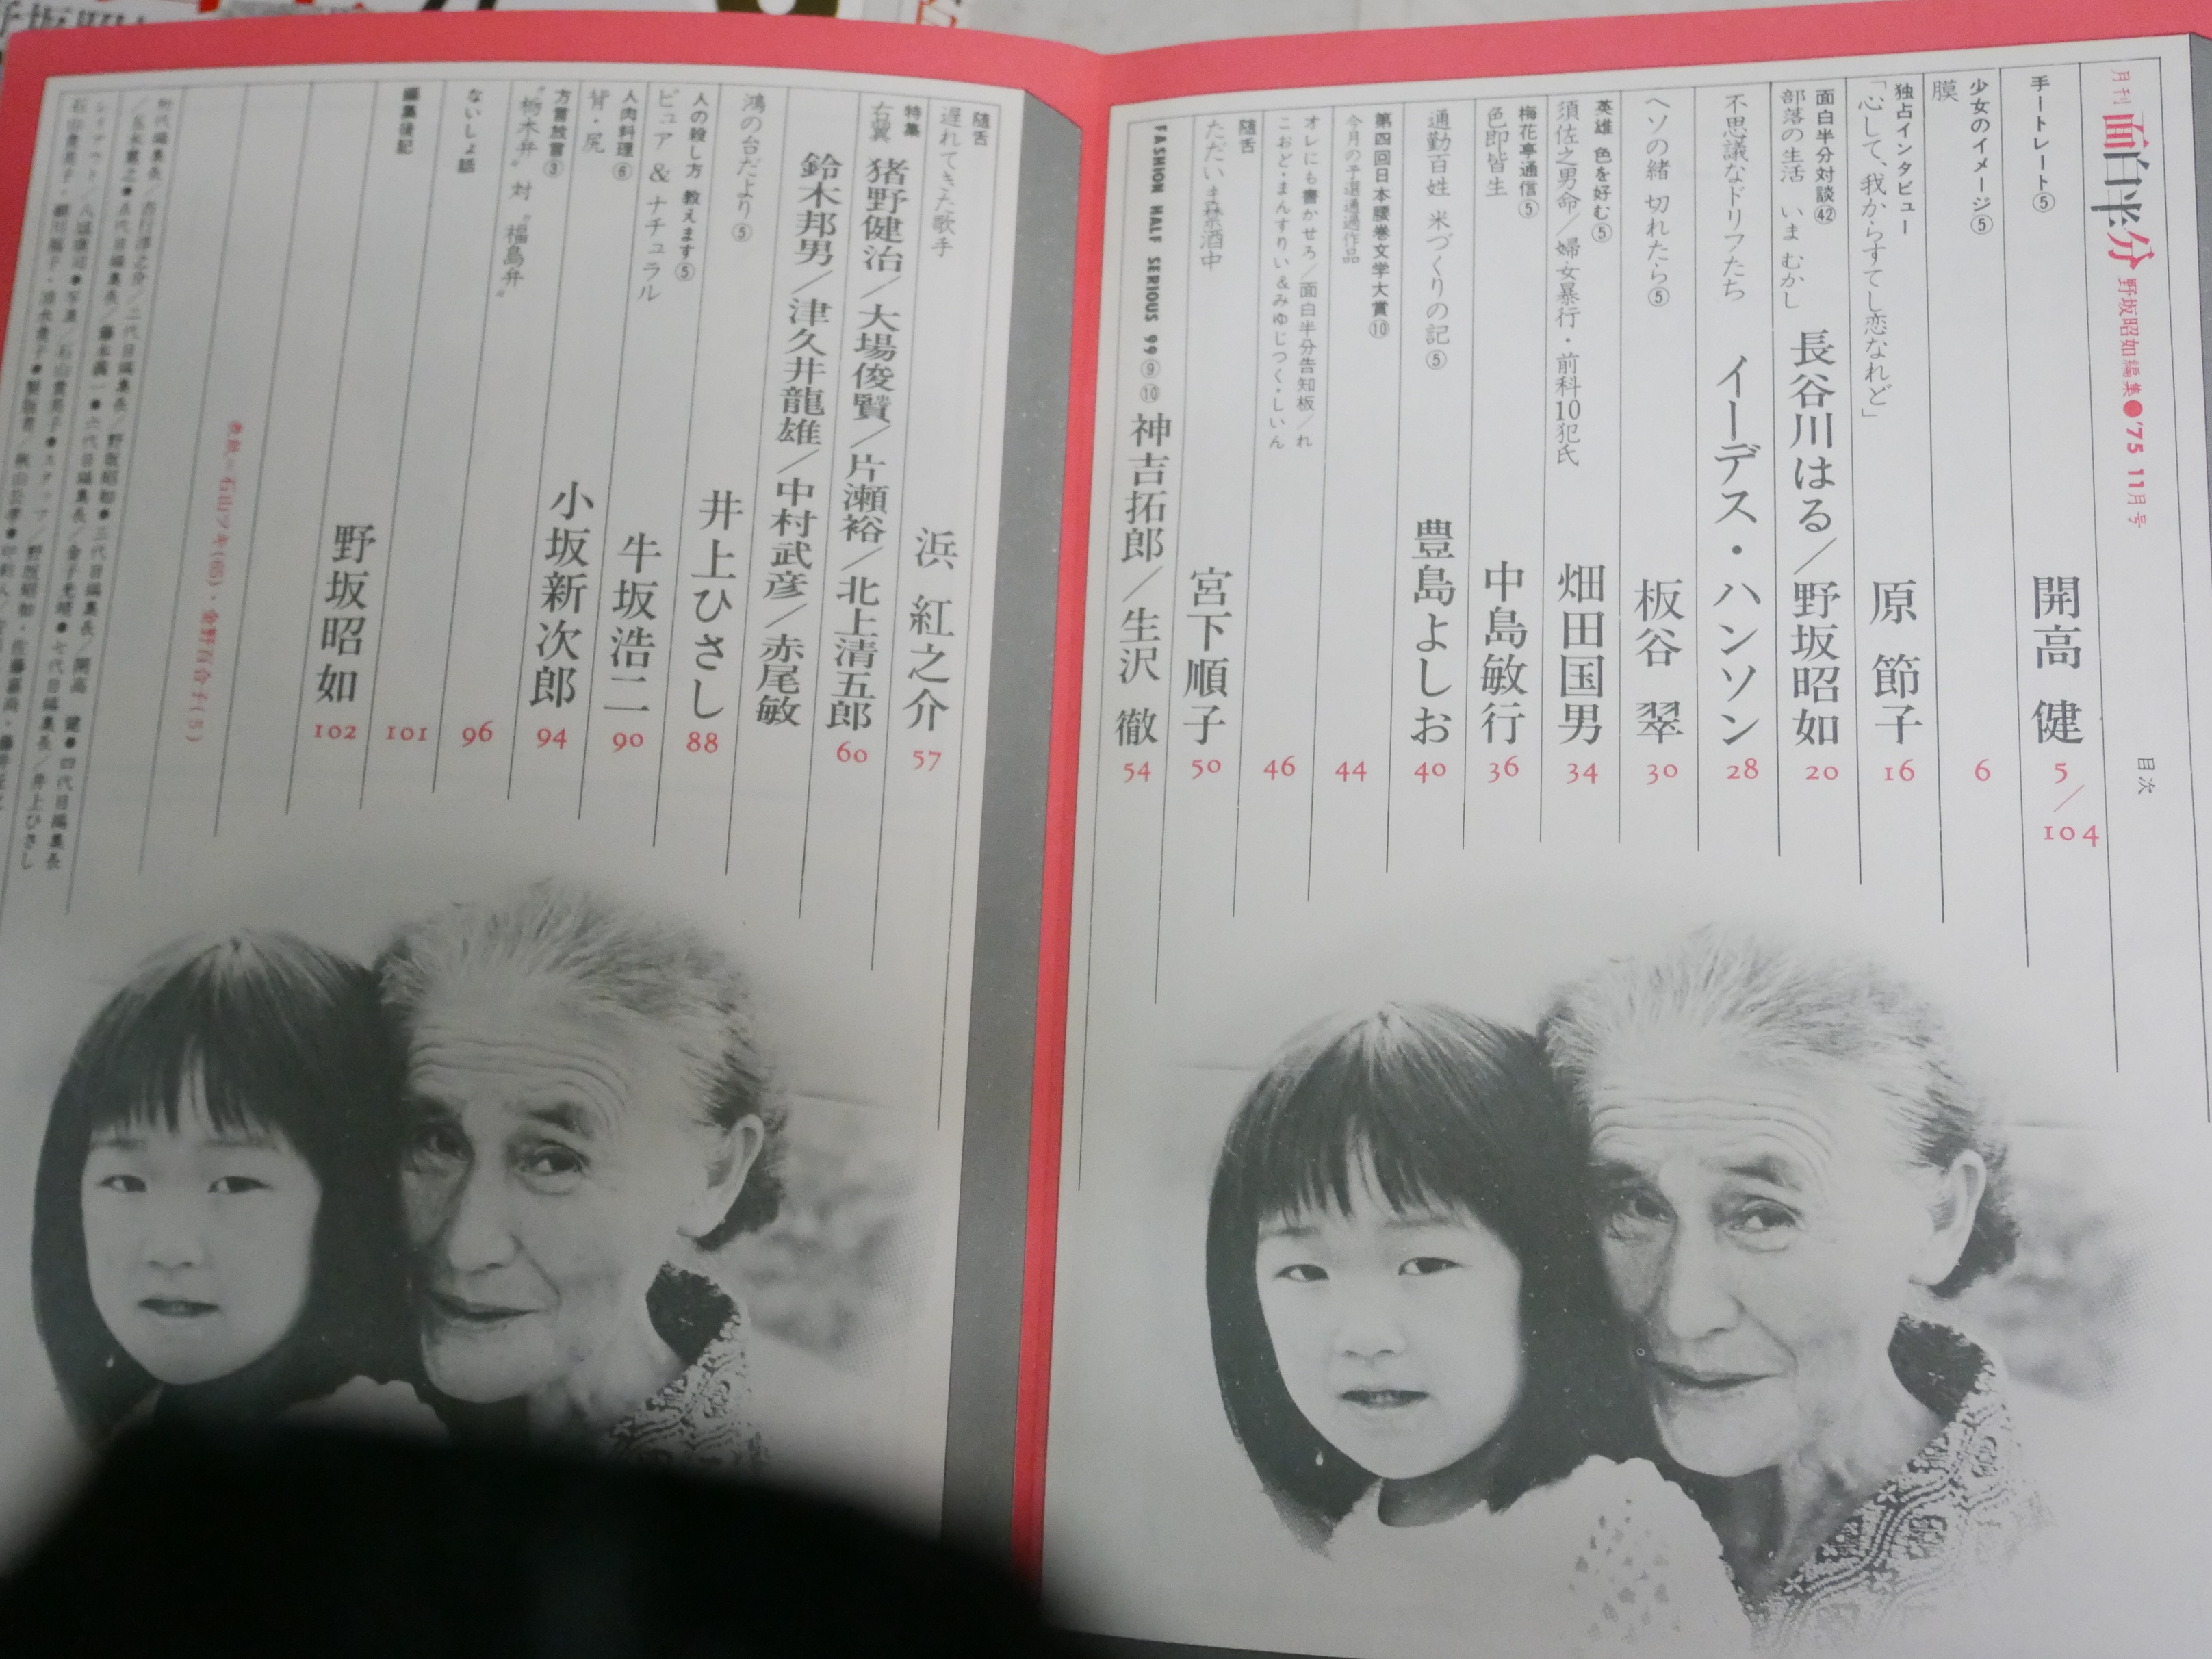 月刊 面白半分 野坂昭如編集●'75 11月号
目次
手ートレート⑤
開高 健 5/104
少女のイメージ⑤
膜
6
独占インタビュー
「心して、我からすてし恋なれど」
原 節子 16
面白半分対談㊷
部落の生活 いま むかし
長谷川はる/野坂昭如 20
不思議なドリフたち
イーデス・ハンソン 28
ヘソの緒 切れたら⑤
板谷 翠 30
英雄 色を好む⑤
須佐之男命/婦女暴行・前科10犯氏
畑田国男 34
梅花亭通信⑤
色即皆生
中島敏行 36
通勤百姓 米づくりの記⑤
豊島よしお 40
第四回日本腰巻文学大賞⑩
今月の予選通過作品
44
オレにも書かせろ/面白半分告知板/れ
こおど・まんすりい&みゆじつく・しいん
46
随舌
ただいま森茶酒中
宮下順子 50
FASHION HALF SERIOUS 99 ⑨⑩
神吉拓郎/生沢 徹 54
随舌
遅れてきた歌手
浜 紅之介 57
特集
右翼
猪野健治/大場俊賢/片瀬裕/北上清五郎
鈴木邦男/津久井龍雄/中村武彦/赤尾敏
60
鴻の台だより⑤
井上ひさし 88
人の殺し方 教えます⑤
ピュア & ナチュラル
牛坂浩二 90
人肉料理⑥
背・尻
方言放言③
"栃木弁" 対 "福島弁"
小坂新次郎 94
ないしょ話
96
編集後記
101
野坂昭如 102
表紙=石山ツキ(65)・金野百合子(5)
初代編集長/吉行淳之介/二代目編集長/野坂昭如●三代目編集長/開高 健●四代目編集長
/五木寛之●五代目編集長/藤本義一●六代目編集長/金子光晴●七代目編集長/井上ひさし